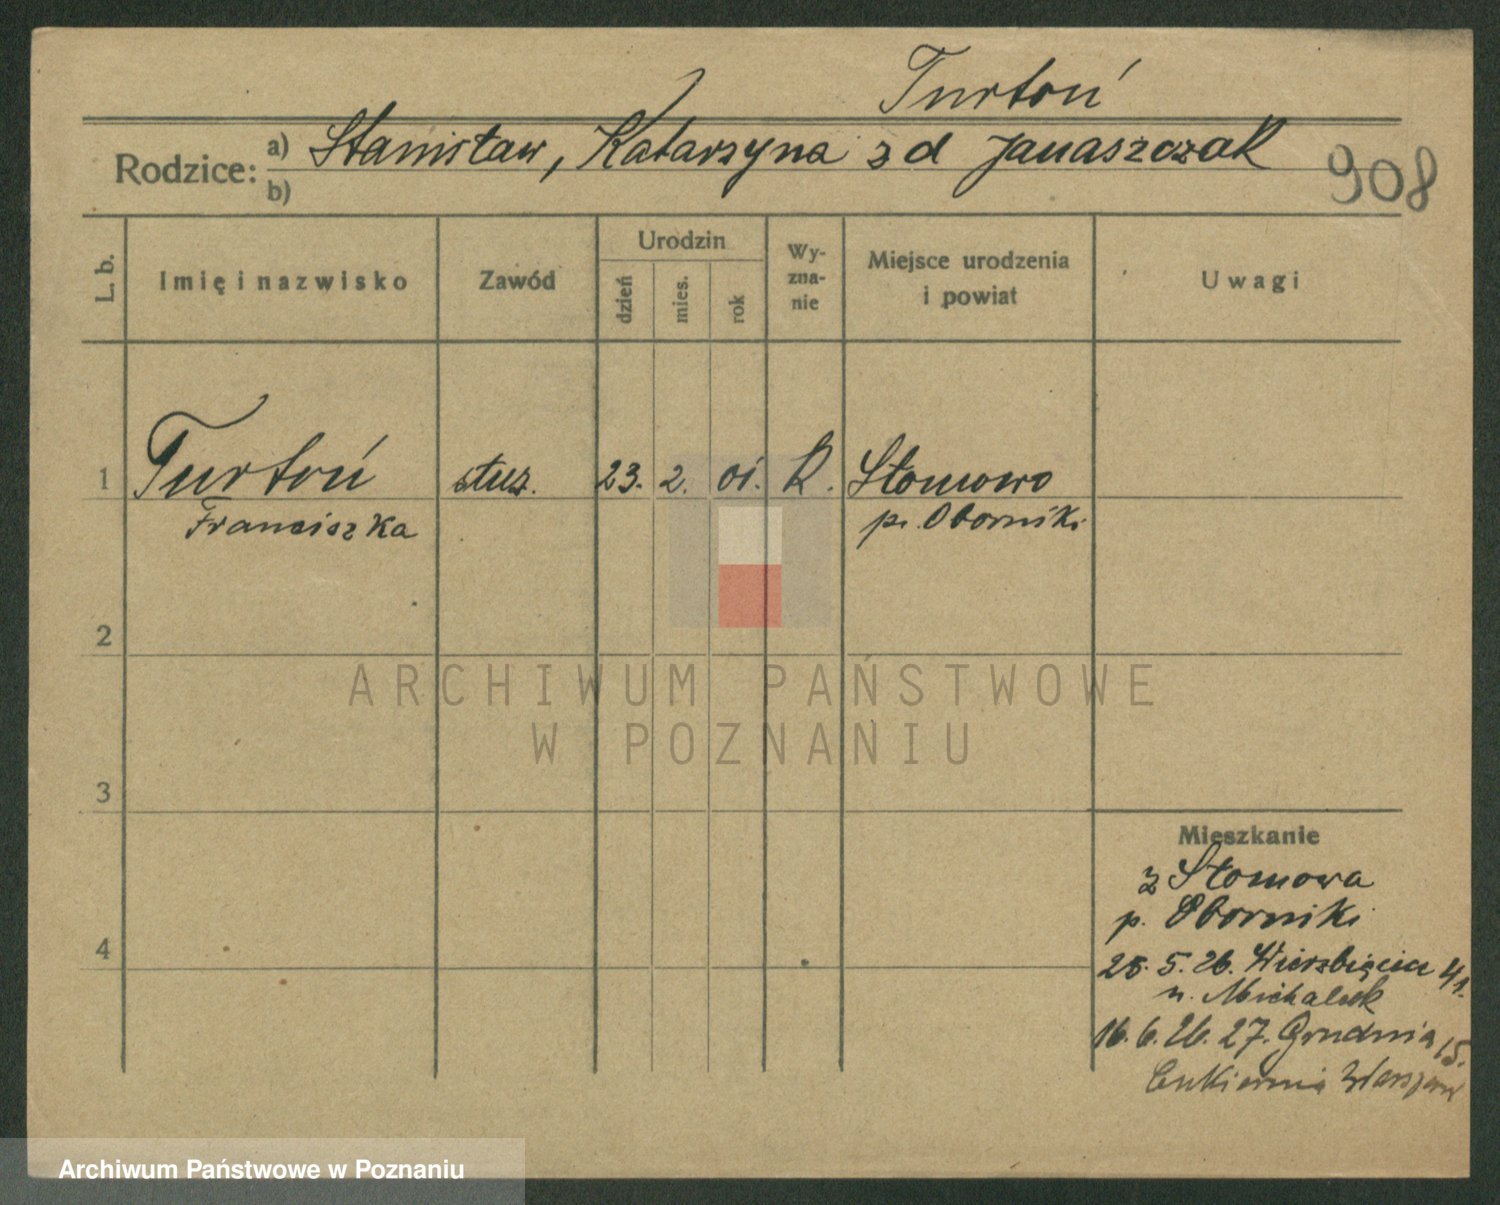 Turtoń
Rodzice: a) Stanisław, Katarzyna z d Janaszczak
b)
908
L. b.
Imię i nazwisko
Zawód
Urodzin
dzień
mies.
rok
Wy-
zna-
nie
Miejsce urodzenia
i powiat
Uwagi
1 Turtoń służ. 23. 2. 01. R. Słomowo
Franciszka p. Oborniki
2
3
4
Mieszkanie
z Słomowa
p. Oborniki
25. 5. 26. Wierzbięcice 41.
u. Michalak
16. 6. 26. 27. Grudnia 15.
Cukiernia
ARCHIWUM PAŃSTWOWE
W POZNANIU
Archiwum Państwowe w Poznaniu